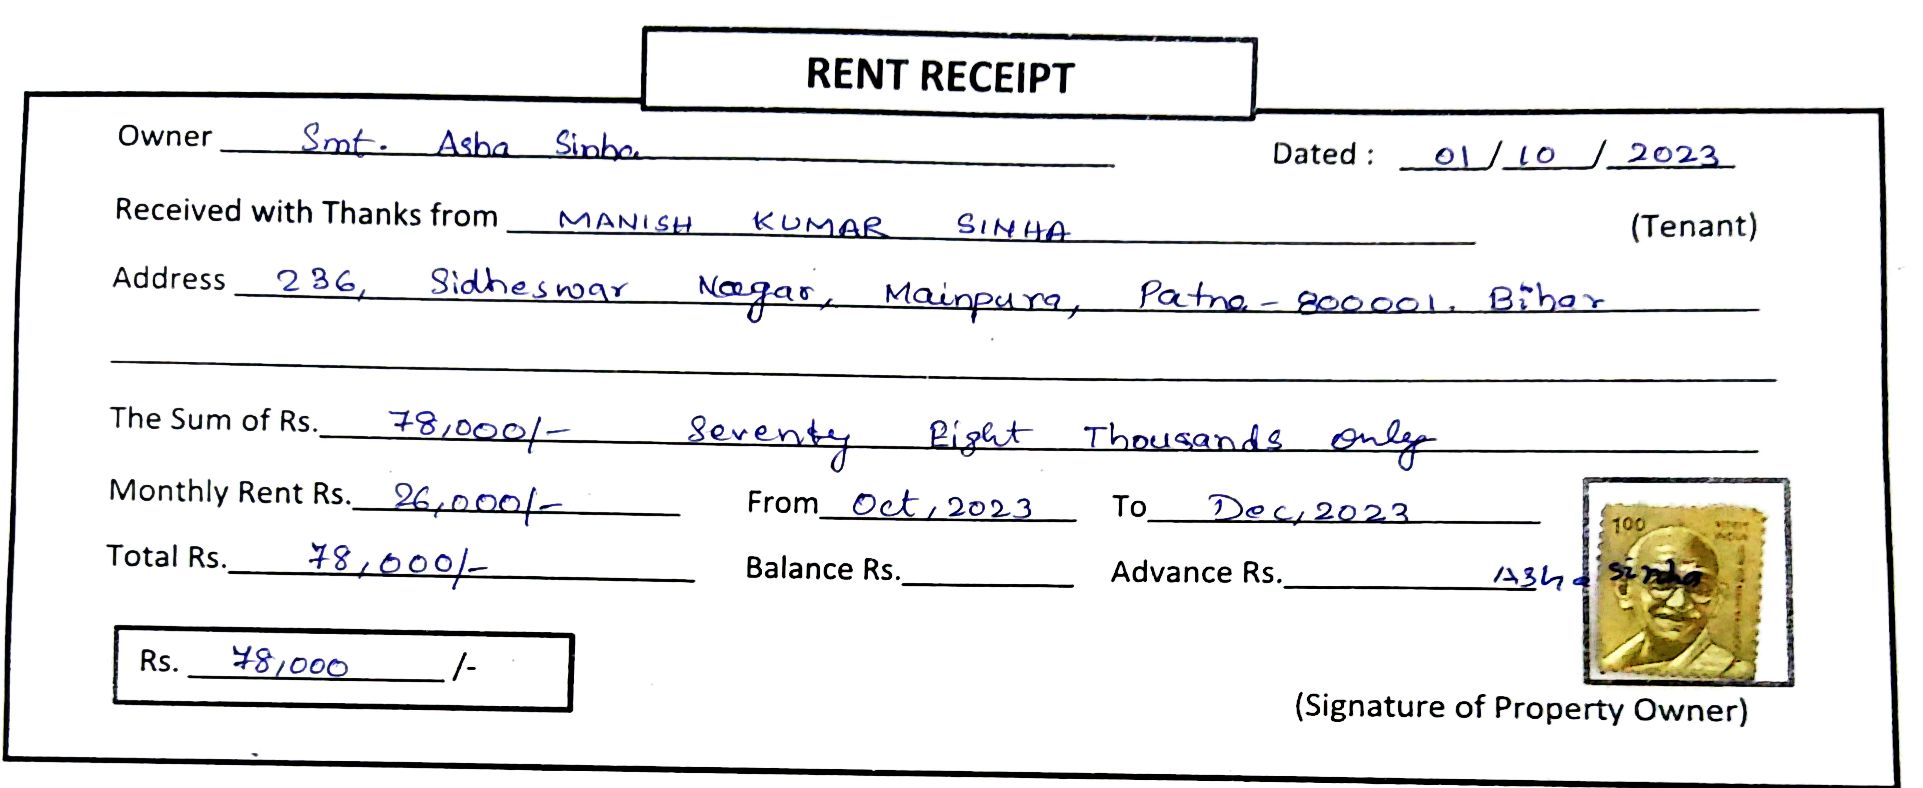 RENT RECEIPT
Owner Smt. Asha Sinha Dated : 01/10/2023
Received with Thanks from MANISH KUMAR SINHA (Tenant)
Address 236, Sidheswar Nagar, Mainpura, Patna - 800001. Bihar
The Sum of Rs. 78,000/- Seventy Eight Thousands Only
Monthly Rent Rs. 26,000/- From Oct, 2023 To Dec, 2023
100
Total Rs. 78,000/- Balance Rs. Advance Rs. Asha Sinha
Rs. 78,000 /-
(Signature of Property Owner)